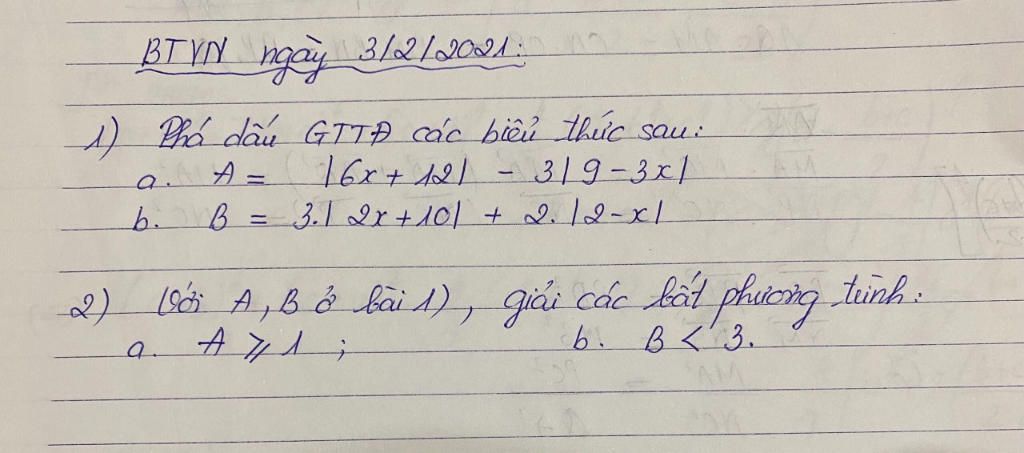 BTVN ngày 3/2/2021:
1) Phá dấu GTTĐ các biểu thức sau:
a. A = |6x + 12| - 3|9 - 3x|
b. B = 3.|2x + 10| + 2.|2 - x|
2) Với A, B ở bài 1), giải các bất phương trình:
a. A ⩾ 1 ; b. B < 3.